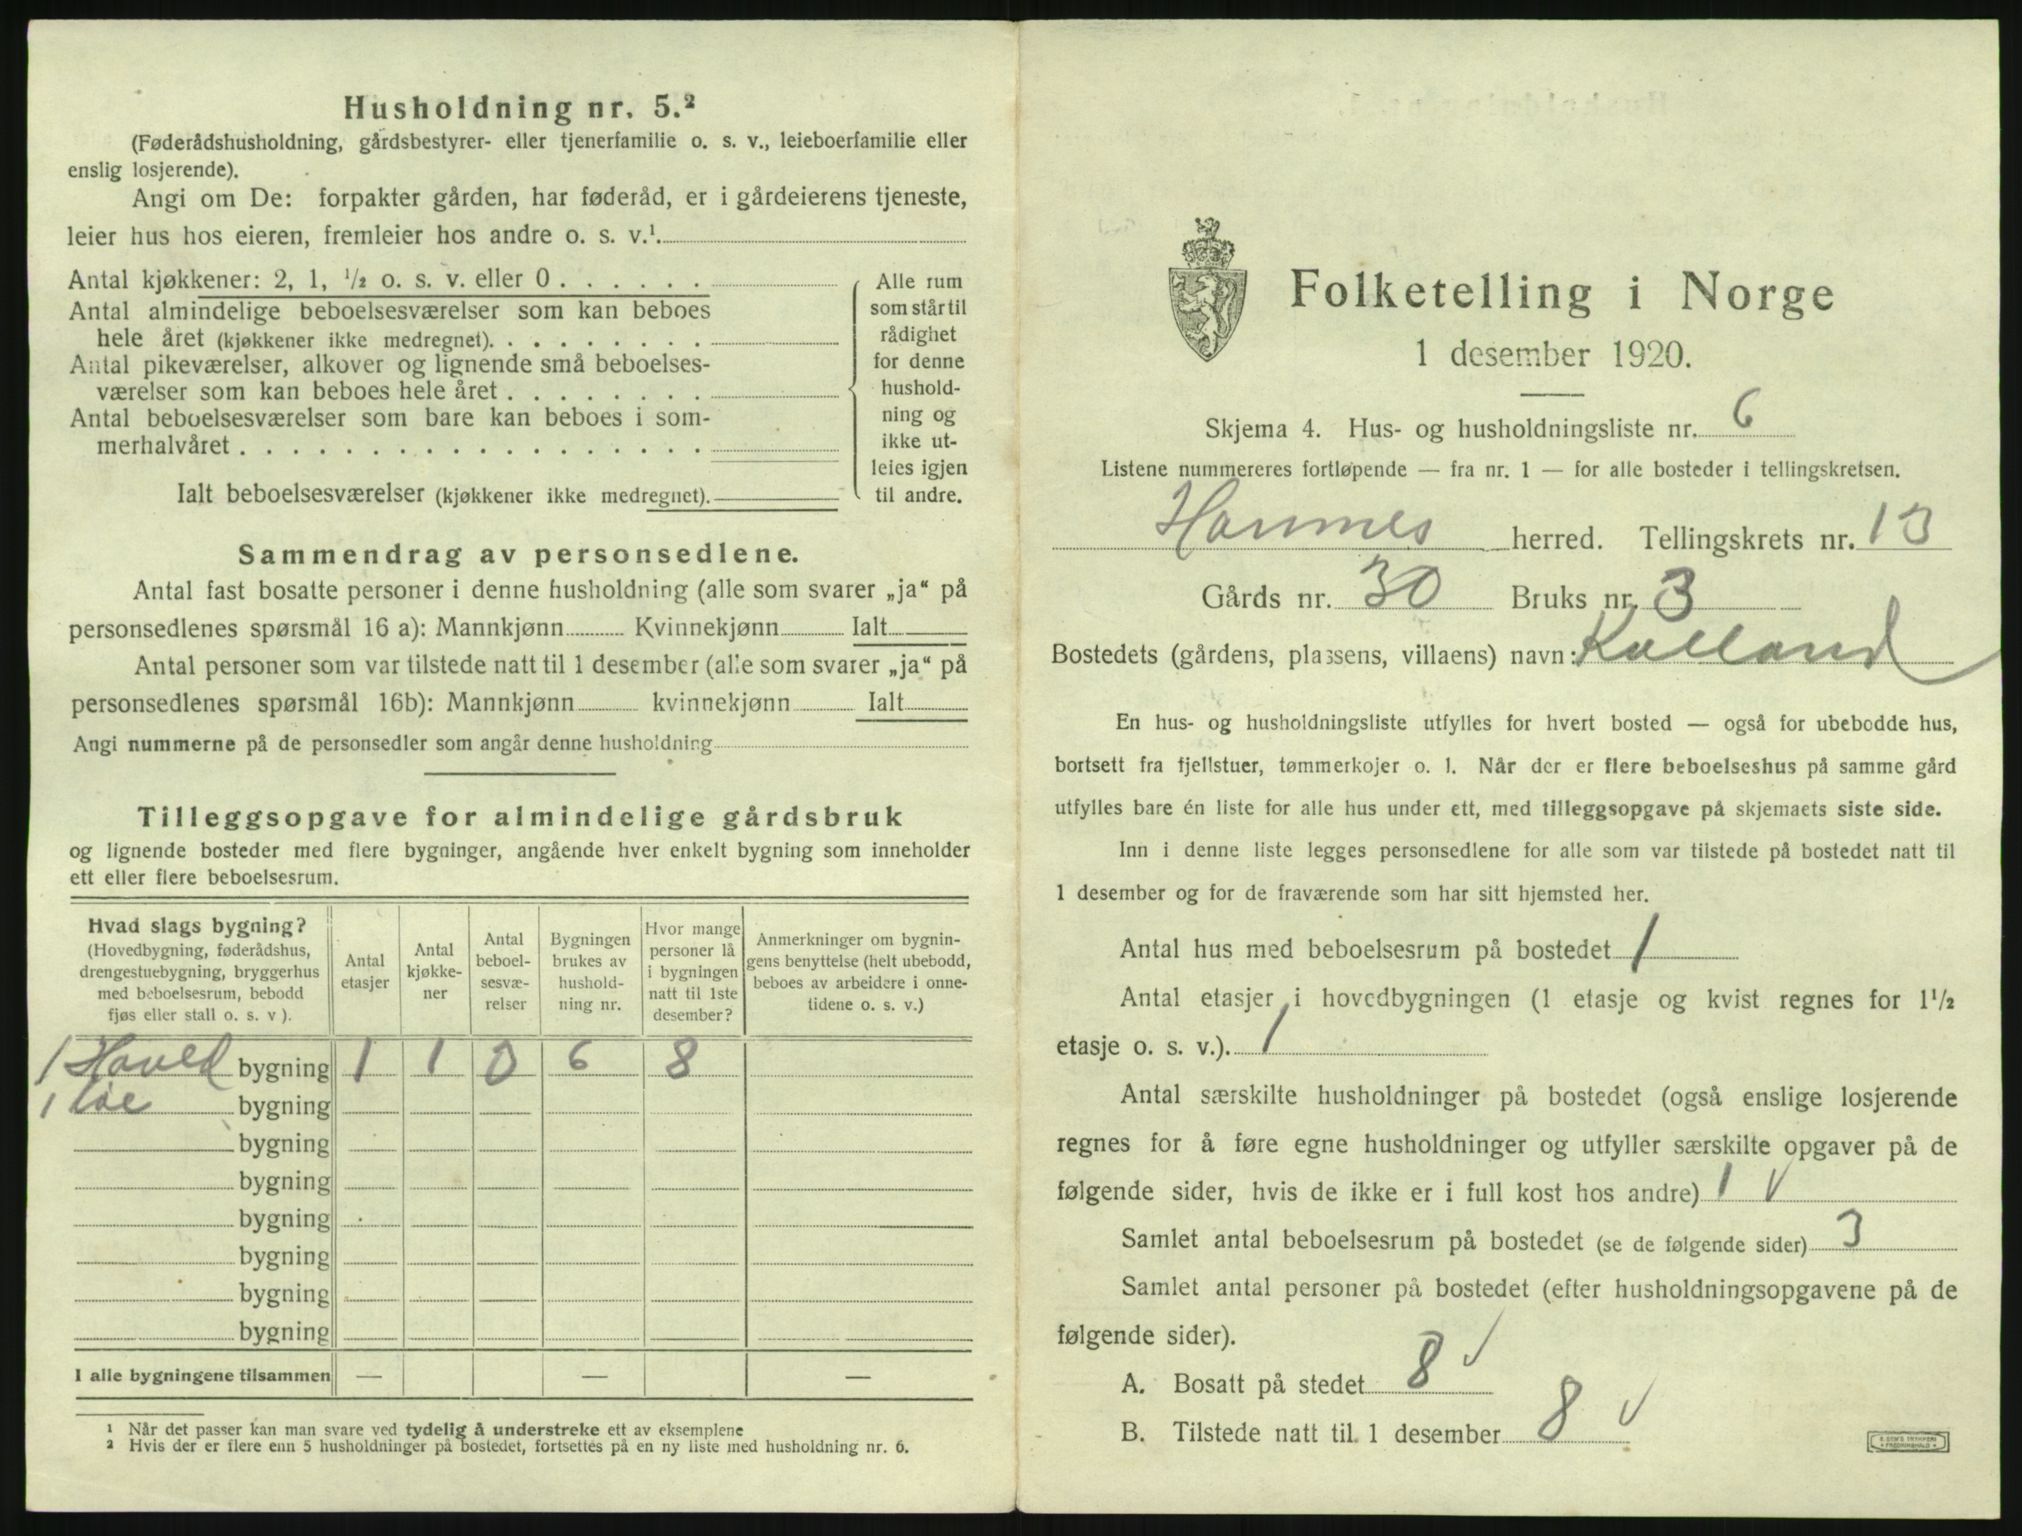 Husholdning nr. 5.²
(Føderådshusholdning, gårdsbestyrer- eller tjenerfamilie o. s. v., leieboerfamilie eller
enslig losjerende).
Angi om De: forpakter gården, har føderåd, er i gårdeierens tjeneste,
leier hus hos eieren, fremleier hos andre o. s. v.¹.
Antal kjøkkener: 2, 1, ½ o. s. v. eller 0 . . . . . .
Antal almindelige beboelsesværelser som kan beboes
hele året (kjøkkener ikke medregnet). . . . . . . . .
Antal pikeværelser, alkover og lignende små beboelses-
værelser som kan beboes hele året . . . . . . . .
Antal beboelsesværelser som bare kan beboes i som-
merhalvåret . . . . . . . . . . . . . . . . . .
Ialt beboelsesværelser (kjøkkener ikke medregnet).
Alle rum
som står til
rådighet
for denne
hushold-
ning og
ikke ut-
leies igjen
til andre.
Sammendrag av personsedlene.
Antal fast bosatte personer i denne husholdning (alle som svarer „ja“ på
personsedlenes spørsmål 16 a): Mannkjønn Kvinnekjønn Ialt
Antal personer som var tilstede natt til 1 desember (alle som svarer „ja“ på
personsedlenes spørsmål 16b): Mannkjønn kvinnekjønn Ialt
Angi nummerne på de personsedler som angår denne husholdning
Tilleggsopgave for almindelige gårdsbruk
og lignende bosteder med flere bygninger, angående hver enkelt bygning som inneholder
ett eller flere beboelsesrum.
Hvad slags bygning?
(Hovedbygning, føderådshus,
drengestuebygning, bryggerhus
med beboelsesrum, bebodd
fjøs eller stall o. s. v ).
Antal
etasjer
Antal
kjøkke-
ner
Antal
beboel-
sesvæ-
relser
Bygningen
brukes av
hushold-
ning nr.
Hvor mange
personer lå
i bygningen
natt til 1ste
desember?
Anmerkninger om bygnin-
gens benyttelse (helt ubebodd,
beboes av arbeidere i onne-
tidene o. s. v.)
1 Hoved bygning 1 1 0 6 8
1 löe bygning
bygning
bygning
bygning
bygning
bygning
bygning
I alle bygningene tilsammen — — —
¹ Når det passer kan man svare ved tydelig å understreke ett av eksemplene
² Hvis der er flere enn 5 husholdninger på bostedet, fortsettes på en ny liste med husholdning nr. 6.
Folketelling i Norge
1 desember 1920.
Skjema 4. Hus- og husholdningsliste nr. 6
Listene nummereres fortløpende — fra nr. 1 — for alle bosteder i tellingskretsen.
Hommes herred. Tellingskrets nr. 13
Gårds nr. 30 Bruks nr. 3
Bostedets (gårdens, plassens, villaens) navn: Kalland
En hus- og husholdningsliste utfylles for hvert bosted — også for ubebodde hus,
bortsett fra fjellstuer, tømmerkojer o. l. Når der er flere beboelseshus på samme gård
utfylles bare én liste for alle hus under ett, med tilleggsopgave på skjemaets siste side.
Inn i denne liste legges personsedlene for alle som var tilstede på bostedet natt til
1 desember og for de fraværende som har sitt hjemsted her.
Antal hus med beboelsesrum på bostedet 1
Antal etasjer i hovedbygningen (1 etasje og kvist regnes for 1½
etasje o. s. v.). 1
Antal særskilte husholdninger på bostedet (også enslige losjerende
regnes for å føre egne husholdninger og utfyller særskilte opgaver på de
følgende sider, hvis de ikke er i full kost hos andre) 1 √
Samlet antal beboelsesrum på bostedet (se de følgende sider) 3
Samlet antal personer på bostedet (efter husholdningsopgavene på de
følgende sider).
A. Bosatt på stedet 8 √
B. Tilstede natt til 1 desember 8 √